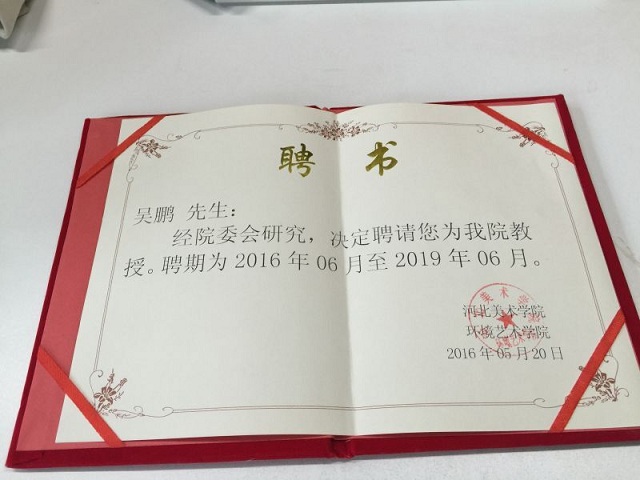 聘 书
吴鹏 先生：
经院委会研究，决定聘请您为我院教
授。聘期为 2016 年 06 月至 2019 年 06 月。
河北美术学院
环境艺术学院
2016 年 05 月 20 日